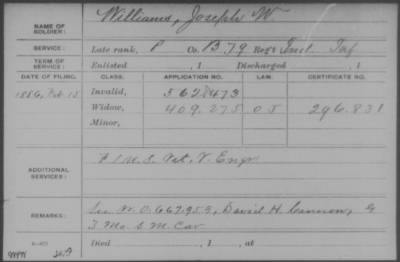 NAME OF SOLDIER: Williams, Joseph W
SERVICE: Late rank, P Co. B. 79 Reg't Ind. Inf
TERM OF SERVICE: Enlisted , 1 Discharged , 1
DATE OF FILING. CLASS. APPLICATION NO. LAW. CERTIFICATE NO.
1886, Feb. 15 Invalid, 562473
Widow, 409.275 296.831
Minor,
ADDITIONAL SERVICES: F 1 U.S. Vet. V. Engr
REMARKS: See W.O. 667.959, David H. Cannon, G
3 Mo. S. M. Cav.
Died , 1 , at